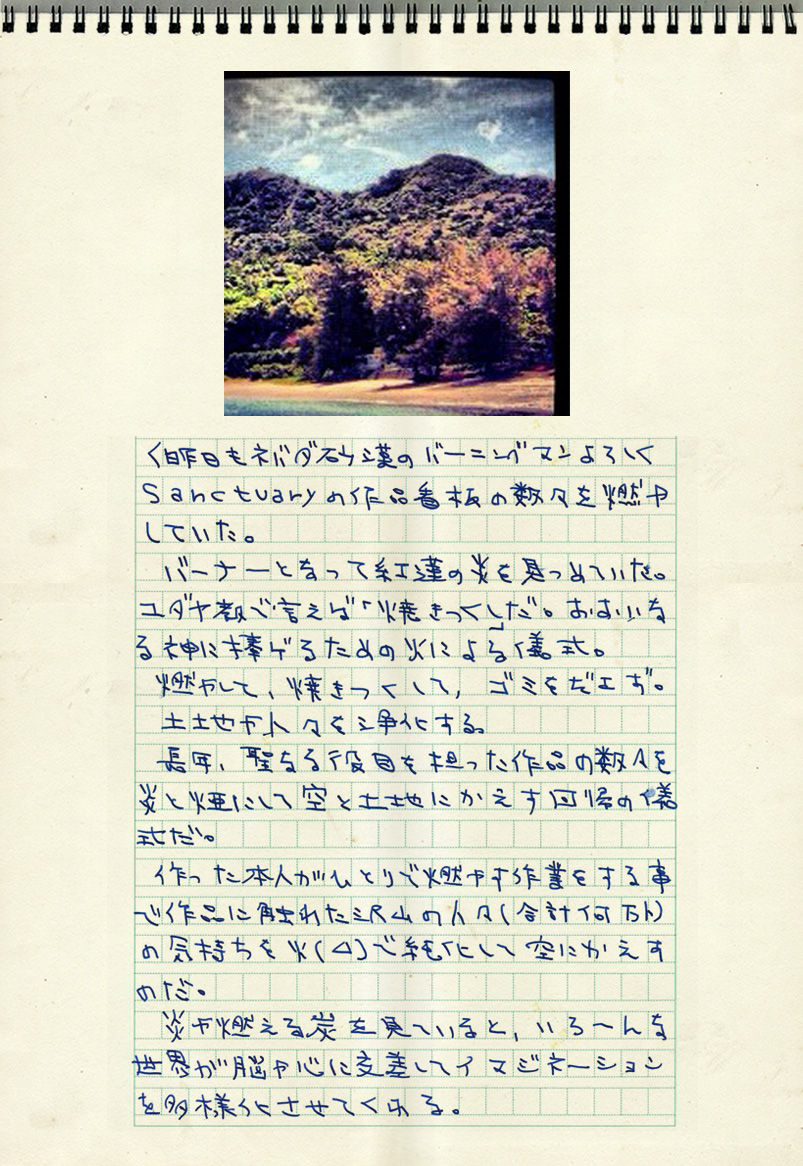 く昨日もネバダ砂漠のバーニングマンよろしく
Sanctuaryの作品看板の数々を燃や
していた。
バーナーとなって紅蓮の炎を見つめていた。
ユダヤ教で言えば「焼きつくし」だ。おおいな
る神に捧げるための火による儀式。
燃やして、焼きつくして、ゴミをださず。
土地や人々を浄化する。
長年、聖なる役目を担った作品の数々を
炎と煙にして空と土地にかえす回帰の儀
式だ。
作った本人がひとりで燃やす作業をする事
で作品に触れた沢山の人々(合計何万人)
の気持ちを火(△)で純化して空にかえす
のだ。
炎や燃える炭を見ていると、いろ〜んな
世界が脳や心に交差してイマジネーション
を多様化させてくれる。